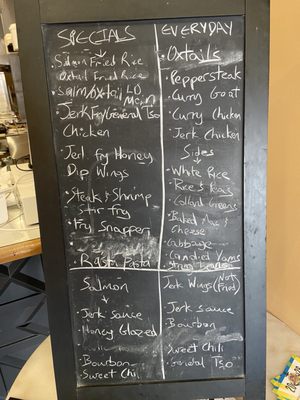 SPECIALS
Salmon Fried Rice
Oxtail Fried Rice
Salmon/Oxtail LO Mein
Jerk Fry/General Tso
Chicken
Jerk fry Honey
Dip Wings
Steak & Shrimp
Stir fry
Fry Snapper
Rasta Pasta
Salmon
Jerk sauce
Honey Glazed
Bourbon
Sweet Chili
EVERYDAY
Oxtails
Pepper steak
Curry Goat
Curry Chicken
Jerk Chicken
Sides
White Rice
Rice & Peas
Collard Greens
Baked Mac &
Cheese
Cabbage
Candied Yams
String Beans
Jerk Wings (Not
Fried)
Jerk sauce
Bourbon
Sweet Chili
General Tso